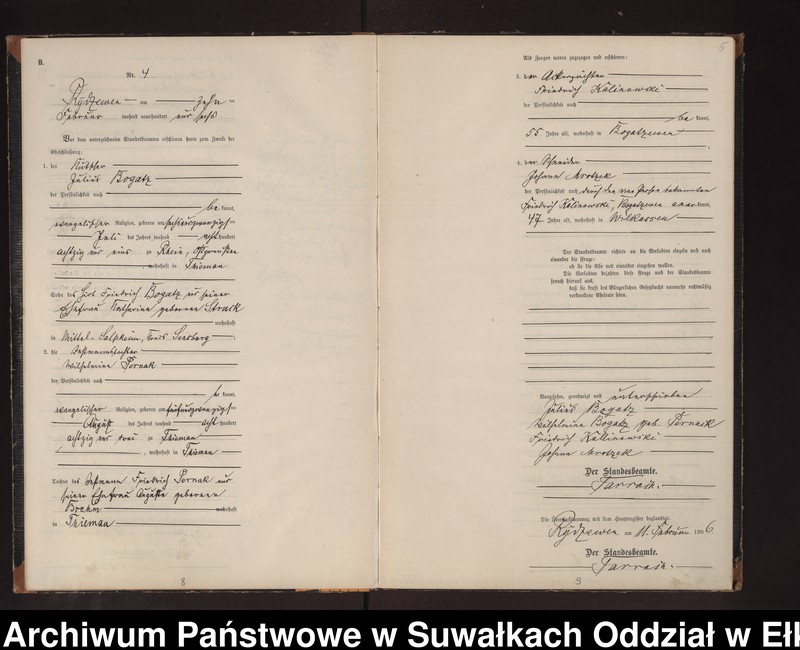 B.
Nr. 4
Rydzewen am zehn ten
Februar tausend neunhundert und sechs
Vor dem unterzeichneten Standesbeamten erschienen heute zum Zwecke der
Eheschließung:
1. der
Julius Bogatz
der Persönlichkeit nach
be kannt,
evangelischer Religion, geboren am
Juli des Jahres tausend acht hundert
achtzig und eins in Rhein, Ostpreußen
wohnhaft in Thiemau
Sohn des Friedrich Bogatz und seiner
Ehefrau Katharine geborenen Struck
wohnhaft
in Mittel-Salpkeim, Kreis Sensburg
2. die
Wilhelmine Pornak
der Persönlichkeit nach
be kannt,
evangelischer Religion, geboren am
August des Jahres tausend acht hundert
achtzig und drei in Thiemau
, wohnhaft in Thiemau
Tochter des Friedrich Pornak und
seiner Ehefrau Auguste geborenen
Brehm wohnhaft
in Thiemau
8
5
Als Zeugen waren zugezogen und erschienen:
3. der
Friedrich Kalinowski
der Persönlichkeit nach
be kannt,
55 Jahre alt, wohnhaft in Bogatzewen
4. der Schneider
Johann Mrotzek
der Persönlichkeit nach durch den
Friedrich Kalinowski, Bogatzewen anerkannt,
47 Jahre alt, wohnhaft in Wilkassen
Der Standesbeamte richtete an die Verlobten einzeln und nach
einander die Frage:
ob sie die Ehe mit einander eingehen wollen.
Die Verlobten bejahten diese Frage und der Standesbeamte
sprach hierauf aus,
daß sie kraft des Bürgerlichen Gesetzbuchs nunmehr rechtmäßig
verbundene Eheleute seien.
Vorgelesen, genehmigt und unterschrieben
Julius Bogatz
Wilhelmine Bogatz geb. Pornack
Friedrich Kallinowski
Johann Mrotzek
Der Standesbeamte.
Die Übereinstimmung mit dem Hauptregister beglaubigt.
Rydzewen am 11. Februar 1906.
Der Standesbeamte.
9
Archiwum Państwowe w Suwałkach Oddział w Ełk